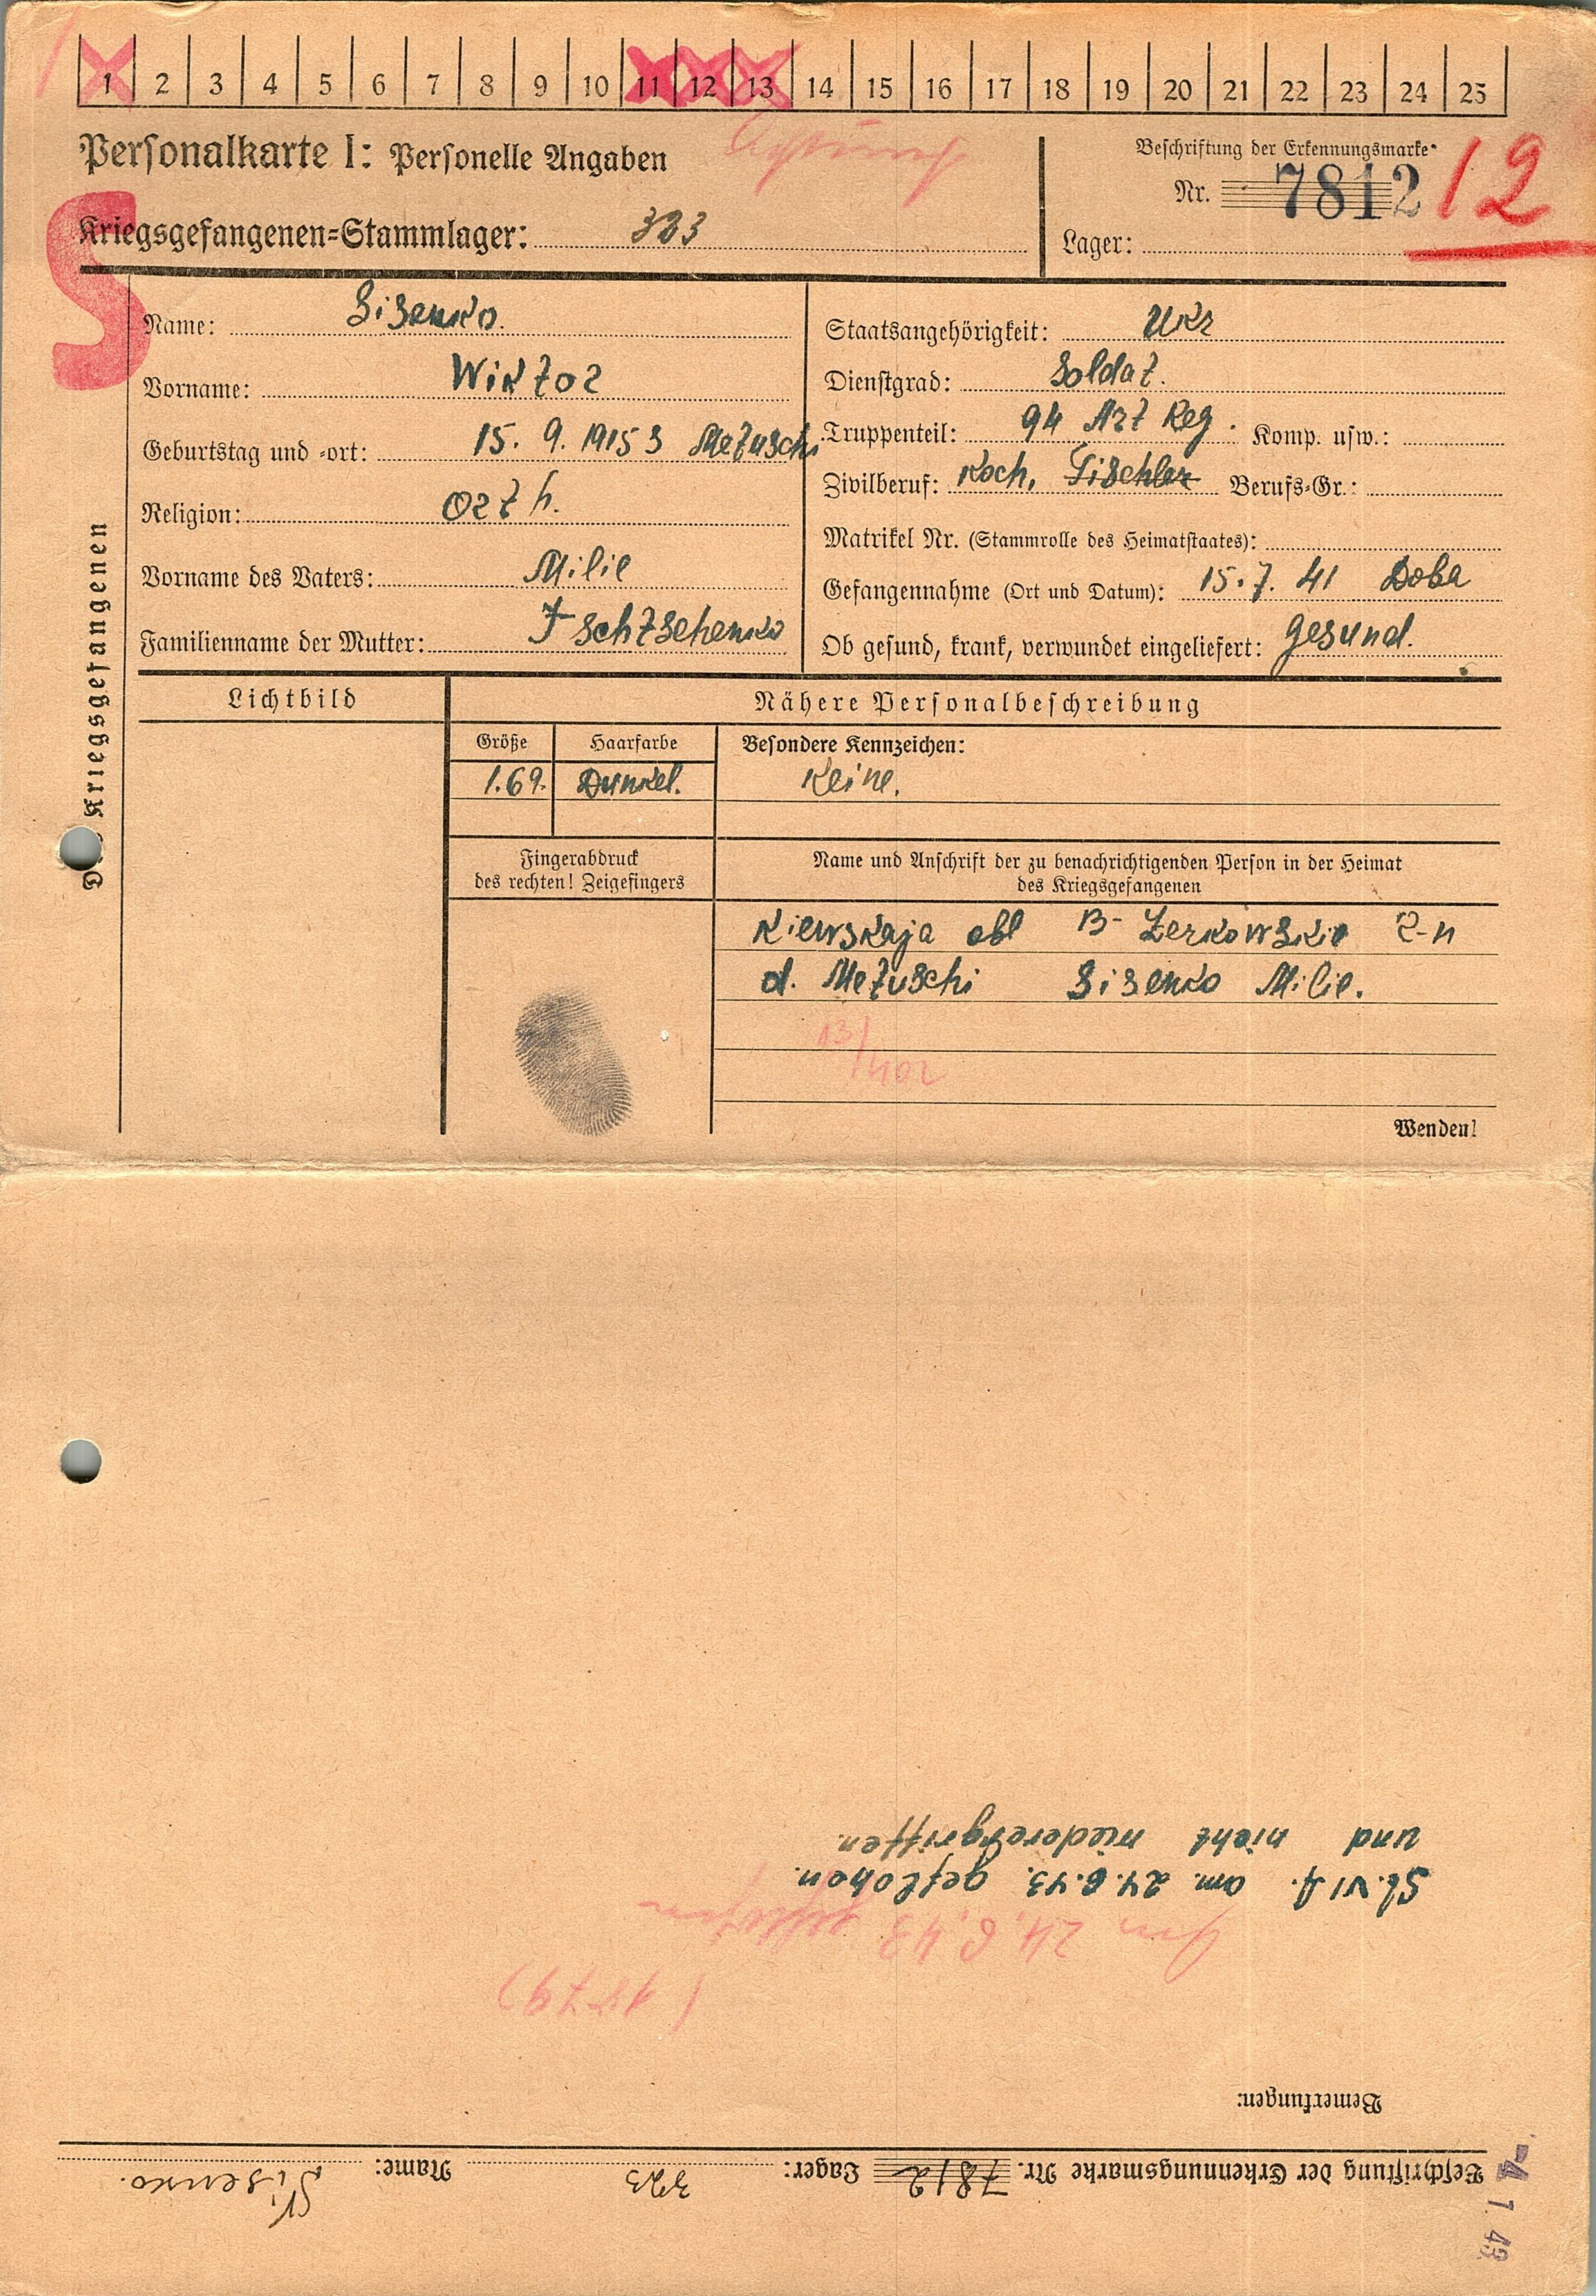 1 2 3 4 5 6 7 8 9 10 11 12 13 14 15 16 17 18 19 20 21 22 23 24 25
Personalkarte I: Personelle Angaben
Beschriftung der Erkennungsmarke
Nr. 7812
12
Kriegsgefangenen=Stammlager: 323
Lager:
S
Des Kriegsgefangenen
Name: Sisenko.
Vorname: Wiktor
Geburtstag und =ort: 15. 9. 1915 Metuschi
Religion: Orth.
Vorname des Vaters: Milie
Familienname der Mutter: Ischtschenko
Staatsangehörigkeit: Ukr
Dienstgrad: Soldat.
Truppenteil: 94 Art Reg. Komp. usw.:
Zivilberuf: Koch, Tischler Berufs=Gr.:
Matrikel Nr. (Stammrolle des Heimatstaates):
Gefangennahme (Ort und Datum): 15.7. 41 Doba
Ob gesund, krank, verwundet eingeliefert: gesund.
Lichtbild
Nähere Personalbeschreibung
Größe Haarfarbe Besondere Kennzeichen:
1.69. Dunkel. Keine.
Fingerabdruck
des rechten! Zeigefingers
Name und Anschrift der zu benachrichtigenden Person in der Heimat
des Kriegsgefangenen
Kiewskaja obl B- Zerkowskie R-n
d. Metuschi Sisenko Milie.
13/402
Wenden!
Beschriftung der Erkennungsmarke Nr. 7812 Lager: 323 Name: Sisenko.
Bemerkungen:
Am 24.6.43 geflohen
St. VI A. am. 24.6.43. geflohen.
und nicht wiederergriffen.
-4. 7. 43